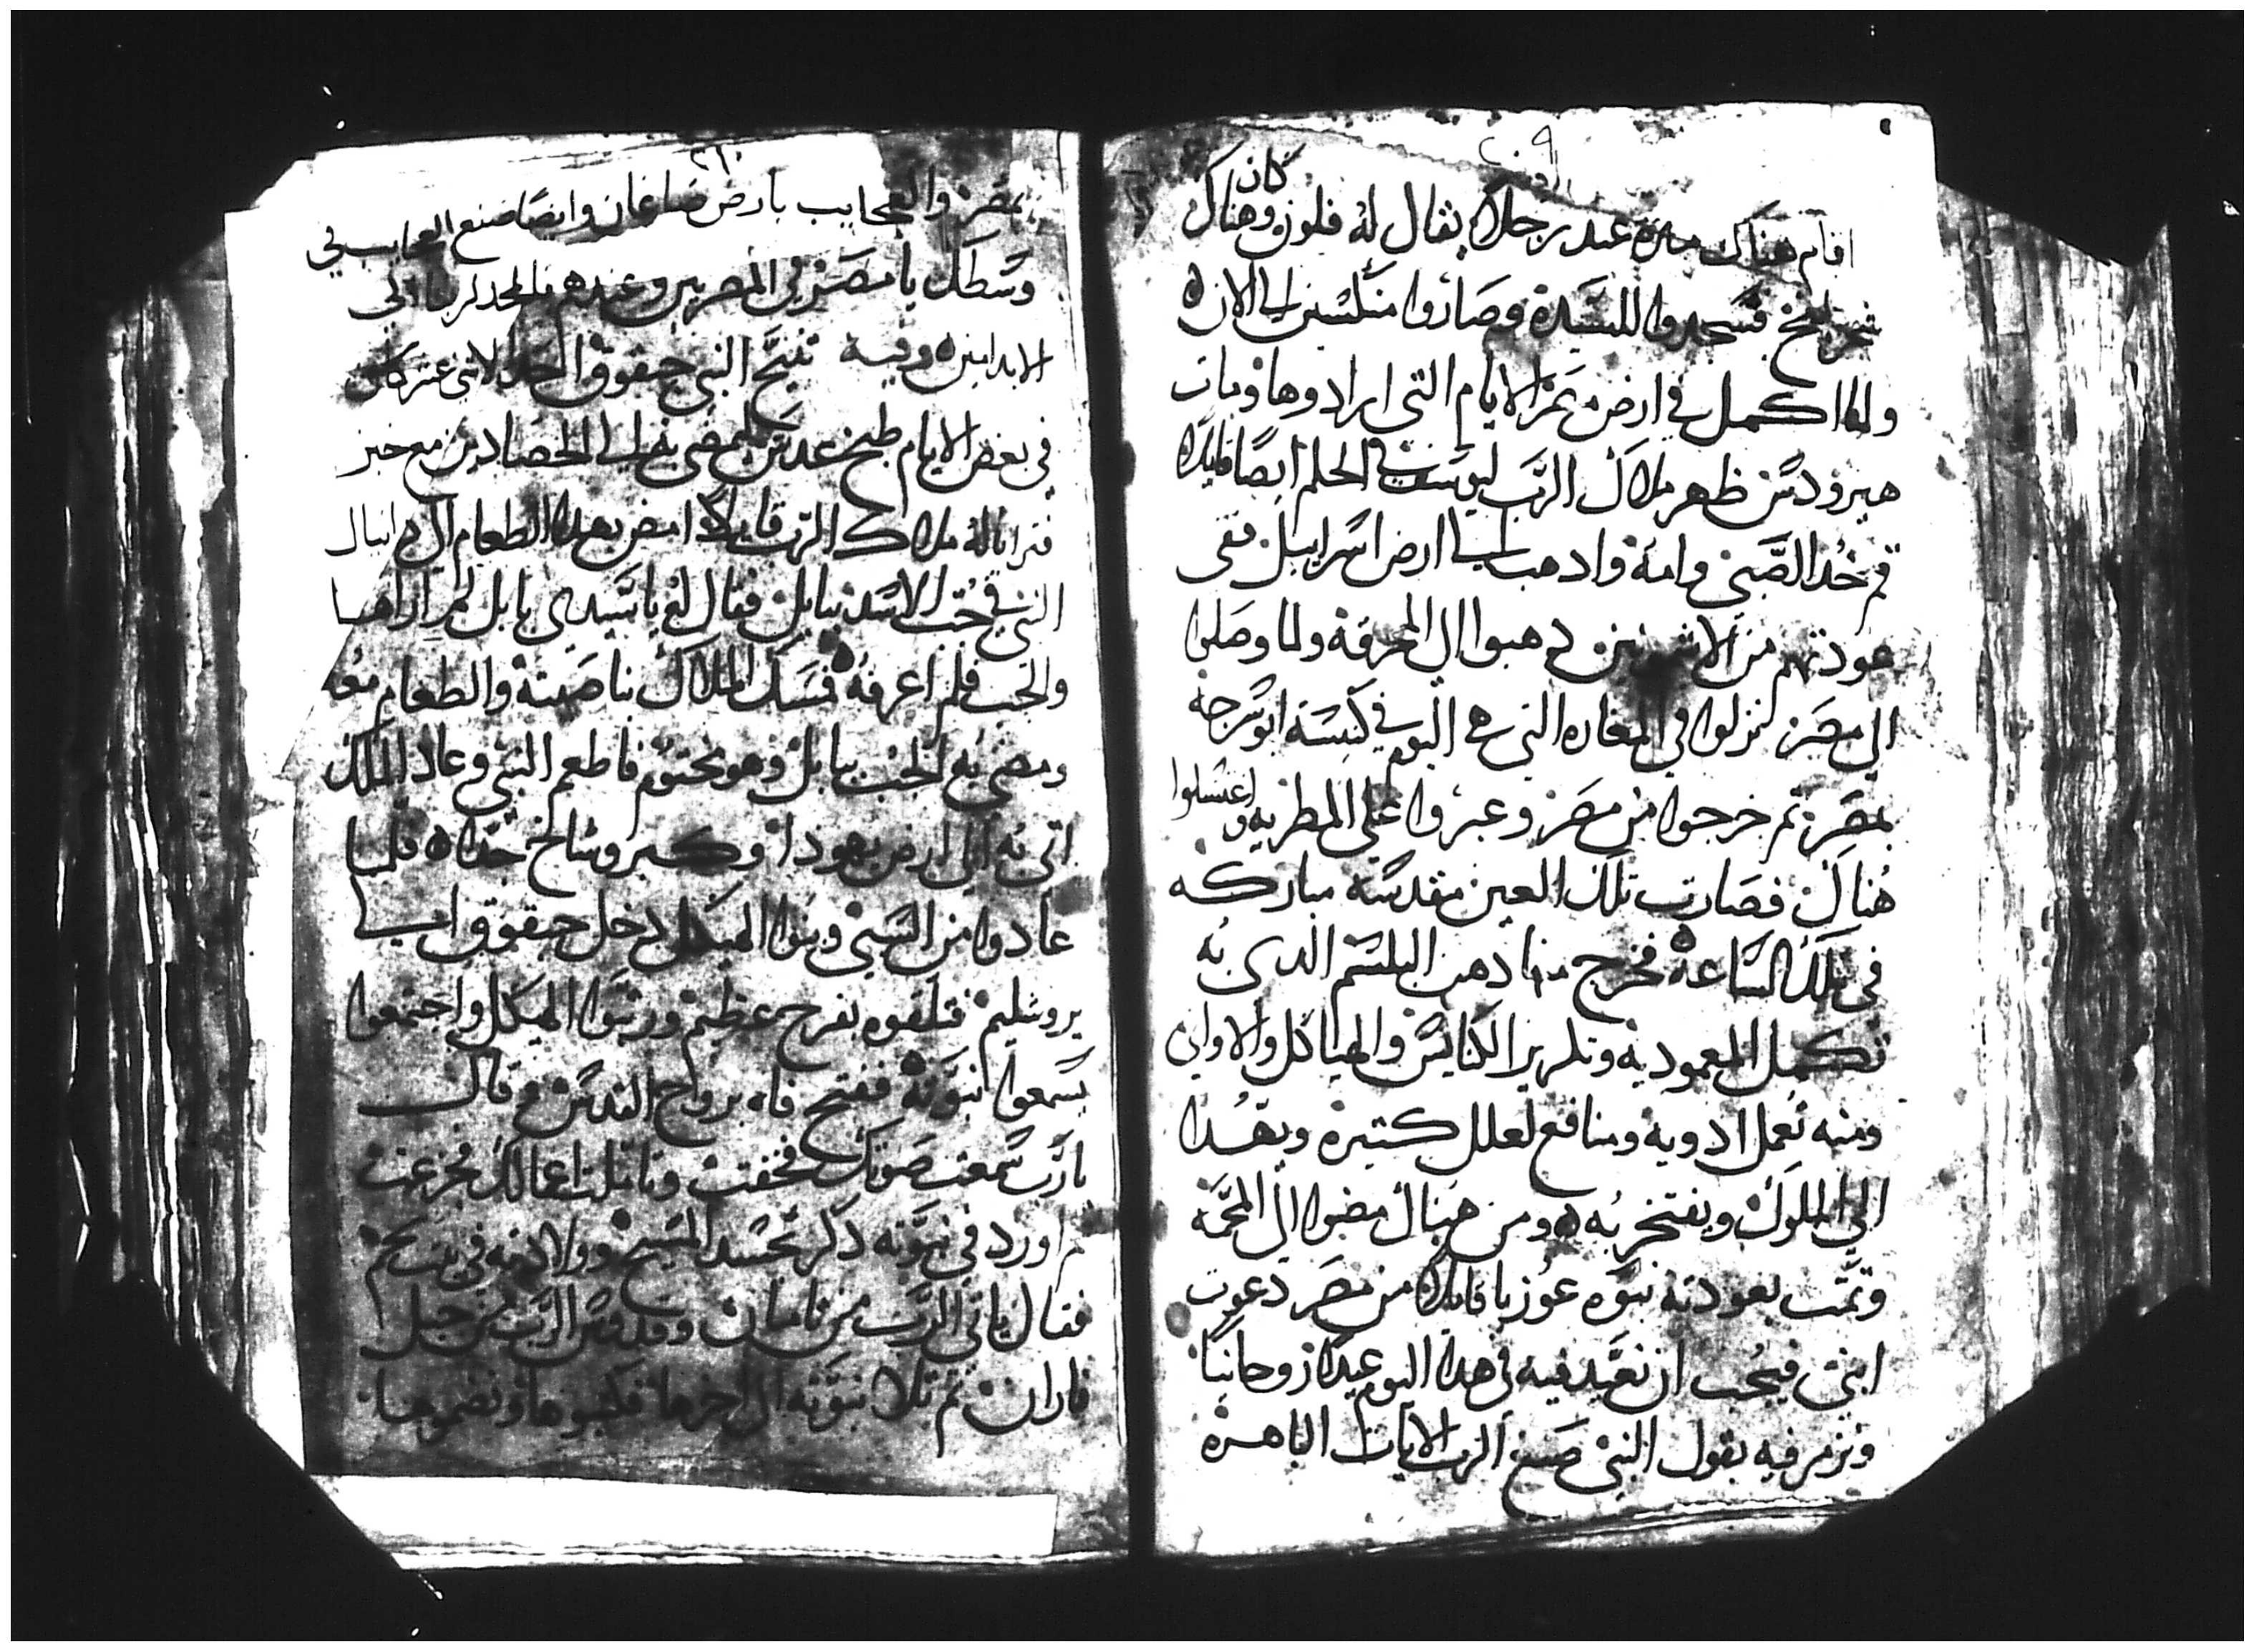 ٢٠٩
اقام هناك مده عند رجلا يقال له فلوز وهناك كان
شجر لبخ فسجدوا للسيدة وصاروا منكسين الى الان
ولما اكمل في ارض مصر الايام التى ارادوها ومات
هيرودس ظهر ملاك الرب ليوسف في الحلم ايضا قايلا
قم خد الصبى وامه وادهب الى ارض اسراييل ففى
عودتهم من الاشمونين دهبوا الى المحرقة ولما وصلوا
الى مصر نزلوا في المغاره التي هي اليوم في كنيسة ابو سرجه
بمصر ثم خرجوا من مصر وعبروا على المطريه واغتسلوا
هناك فصارت تلك العين مقدسه مباركه
في تلك الساعة فخرج منها دهن البلسم الدى به
تكمل المعموديه وتكريز الكنايس والهياكل والاواني
ومنه تعمل ادويه ومنافع لعلل كتيره ويهدا
الى الملوك ويفتخر به ومن هناك مضوا الى المحمه
وتمت بعودته نبوه عوزيا قايلا من مصر دعوت
ابنى فيجب ان نعيد فيه فى هدا اليوم عيدا روحانيا
ونزمر فيه بقول النبى صنع الرب الايات الباهره
٢١٠
بمصر والعجايب بارض صاعان وايضا صنع العجايب في
وسطك يا مصر في المصريين وعبيدهم فالمجد لربنا الى
الابد امين وفيه تنيح النبي حبقوق احد الاثنى عشر كان
في بعض الايام طبخ عدس ليمضى به الى الحصادين مع خبز
فترايا له ملاك الرب قايلا امض بهدا الطعام الى دانيال
النبي في جب الاسد ببابل فقال له يا سيدى بابل لم اراها
والجب فلم اعرفه فمسك الملاك بناصيته والطعام معه
ومضى به الى الجب ببابل وهو مختوم فاطعم النبي وعاد الملاك
اتى به الى ارض يهودا وكبر وشاخ جدا فلما
عادوا من السبى وبنوا الهيكل دخل حبقوق الى
يروشليم فتلقوه بفرح عظيم ورتبوا الهيكل واجتمعوا
يسمعوا نبوته ففتح فاه بروح القدس وقال
يارب سمعت صوتك فخفت وتاملت اعمالك فجزعت
ثم اورد في نبوته دكر تجسد المسيح وولادته في بيت لحم
فقال ياتى الرب من تامان وقدوس الرب من جبل
فاران ثم تلا نبوته الى اخرها فكتبوها وضموها